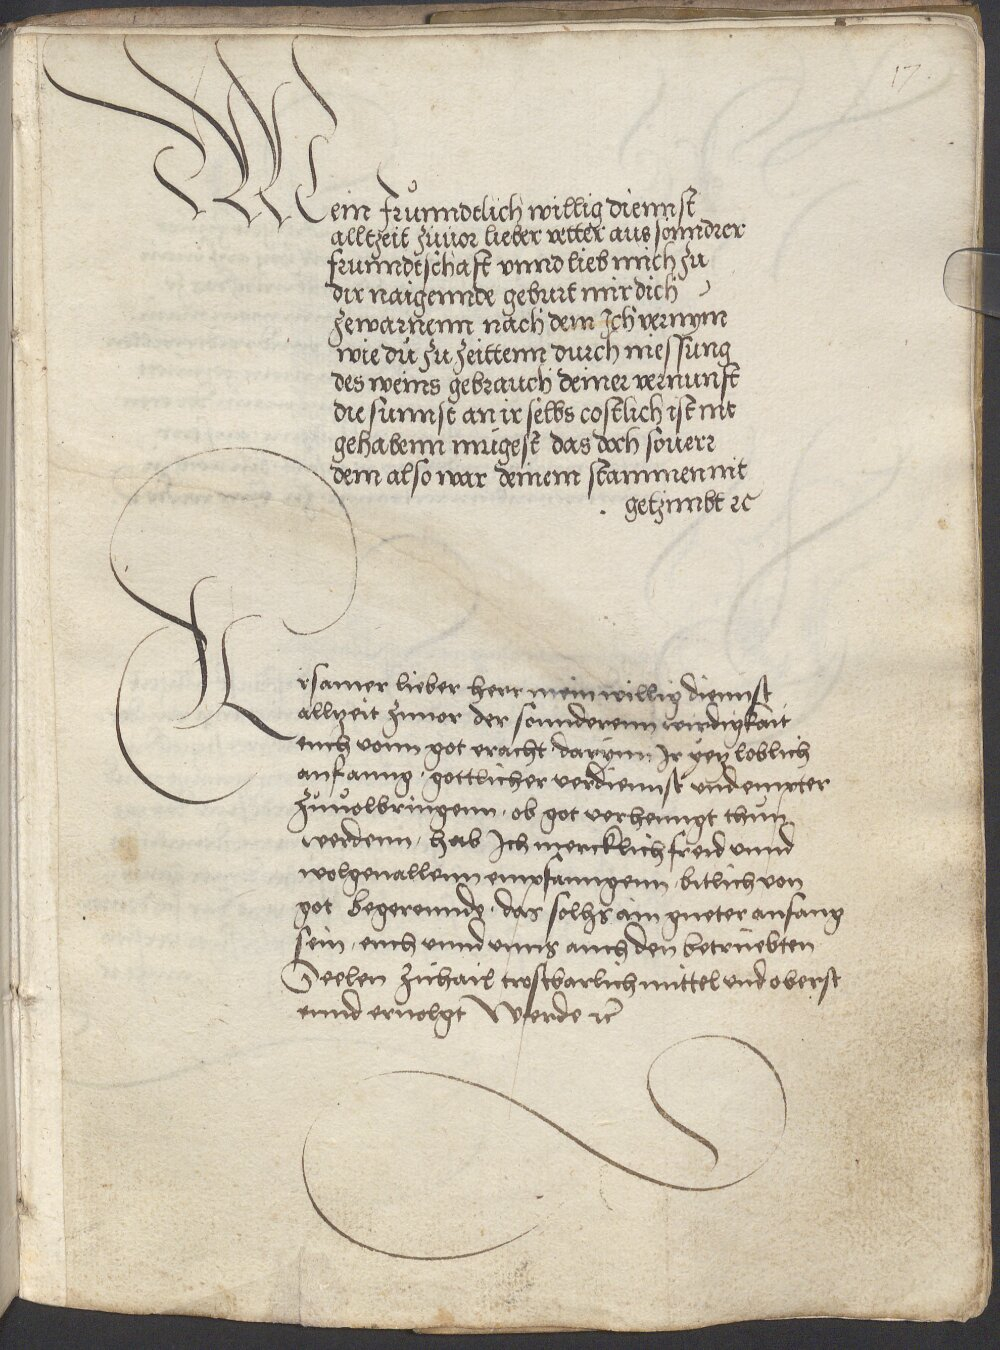 17.
Mein frunndtlich willig diennst
alltzeit zuuor lieber vetter aus sonndrer
frunndtschaft vnnd lieb mich zu
dir naigennde geburt mir dich
zewarnenn nach dem Ich vernym
wie du zu zeittenn durch niessung
des weins gebrauch deiner vernunft
die sunnst an ir selbs costlich ist nit
gehabenn mugest das doch souerr
dem also war deinem stammen nit
getzimbt ꝛc
Ersamer lieber herr mein willig diennst
allzeit zuuor der sonnderenn wirdigkait
euch vonn got eracht darynn Ir yez loblich
anfanng gottlicher verdiennst vnd empter
zuuolbringenn ob got verhenngt thun
werdenn hab Ich mercklich freid vnnd
wolgeuallenn empfanngenn bitlich von
got begerennde das solhs ain gueter anfang
sein euch vnnd vnns auch den betruebten
Seelen zuhail trostbarlich mittel vnd oberst
ennd eruolgt Werde ꝛc